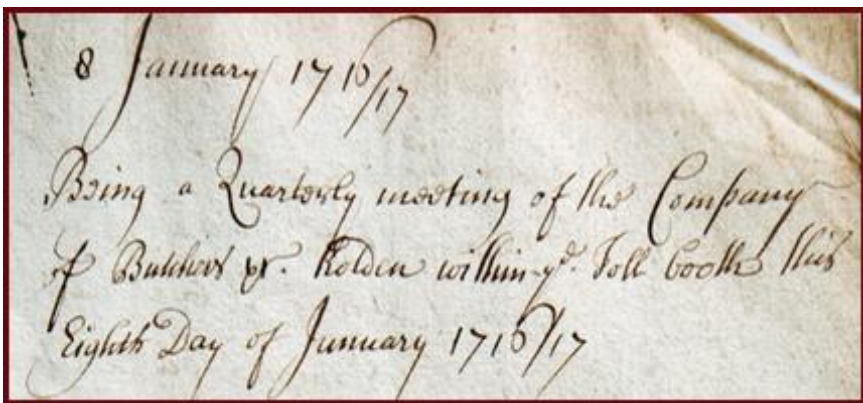 8 January 1716/17
Being a Quarterly meeting of the Company
of Butchers &c. holden within ye. Toll booth this
Eighth Day of January 1716/17